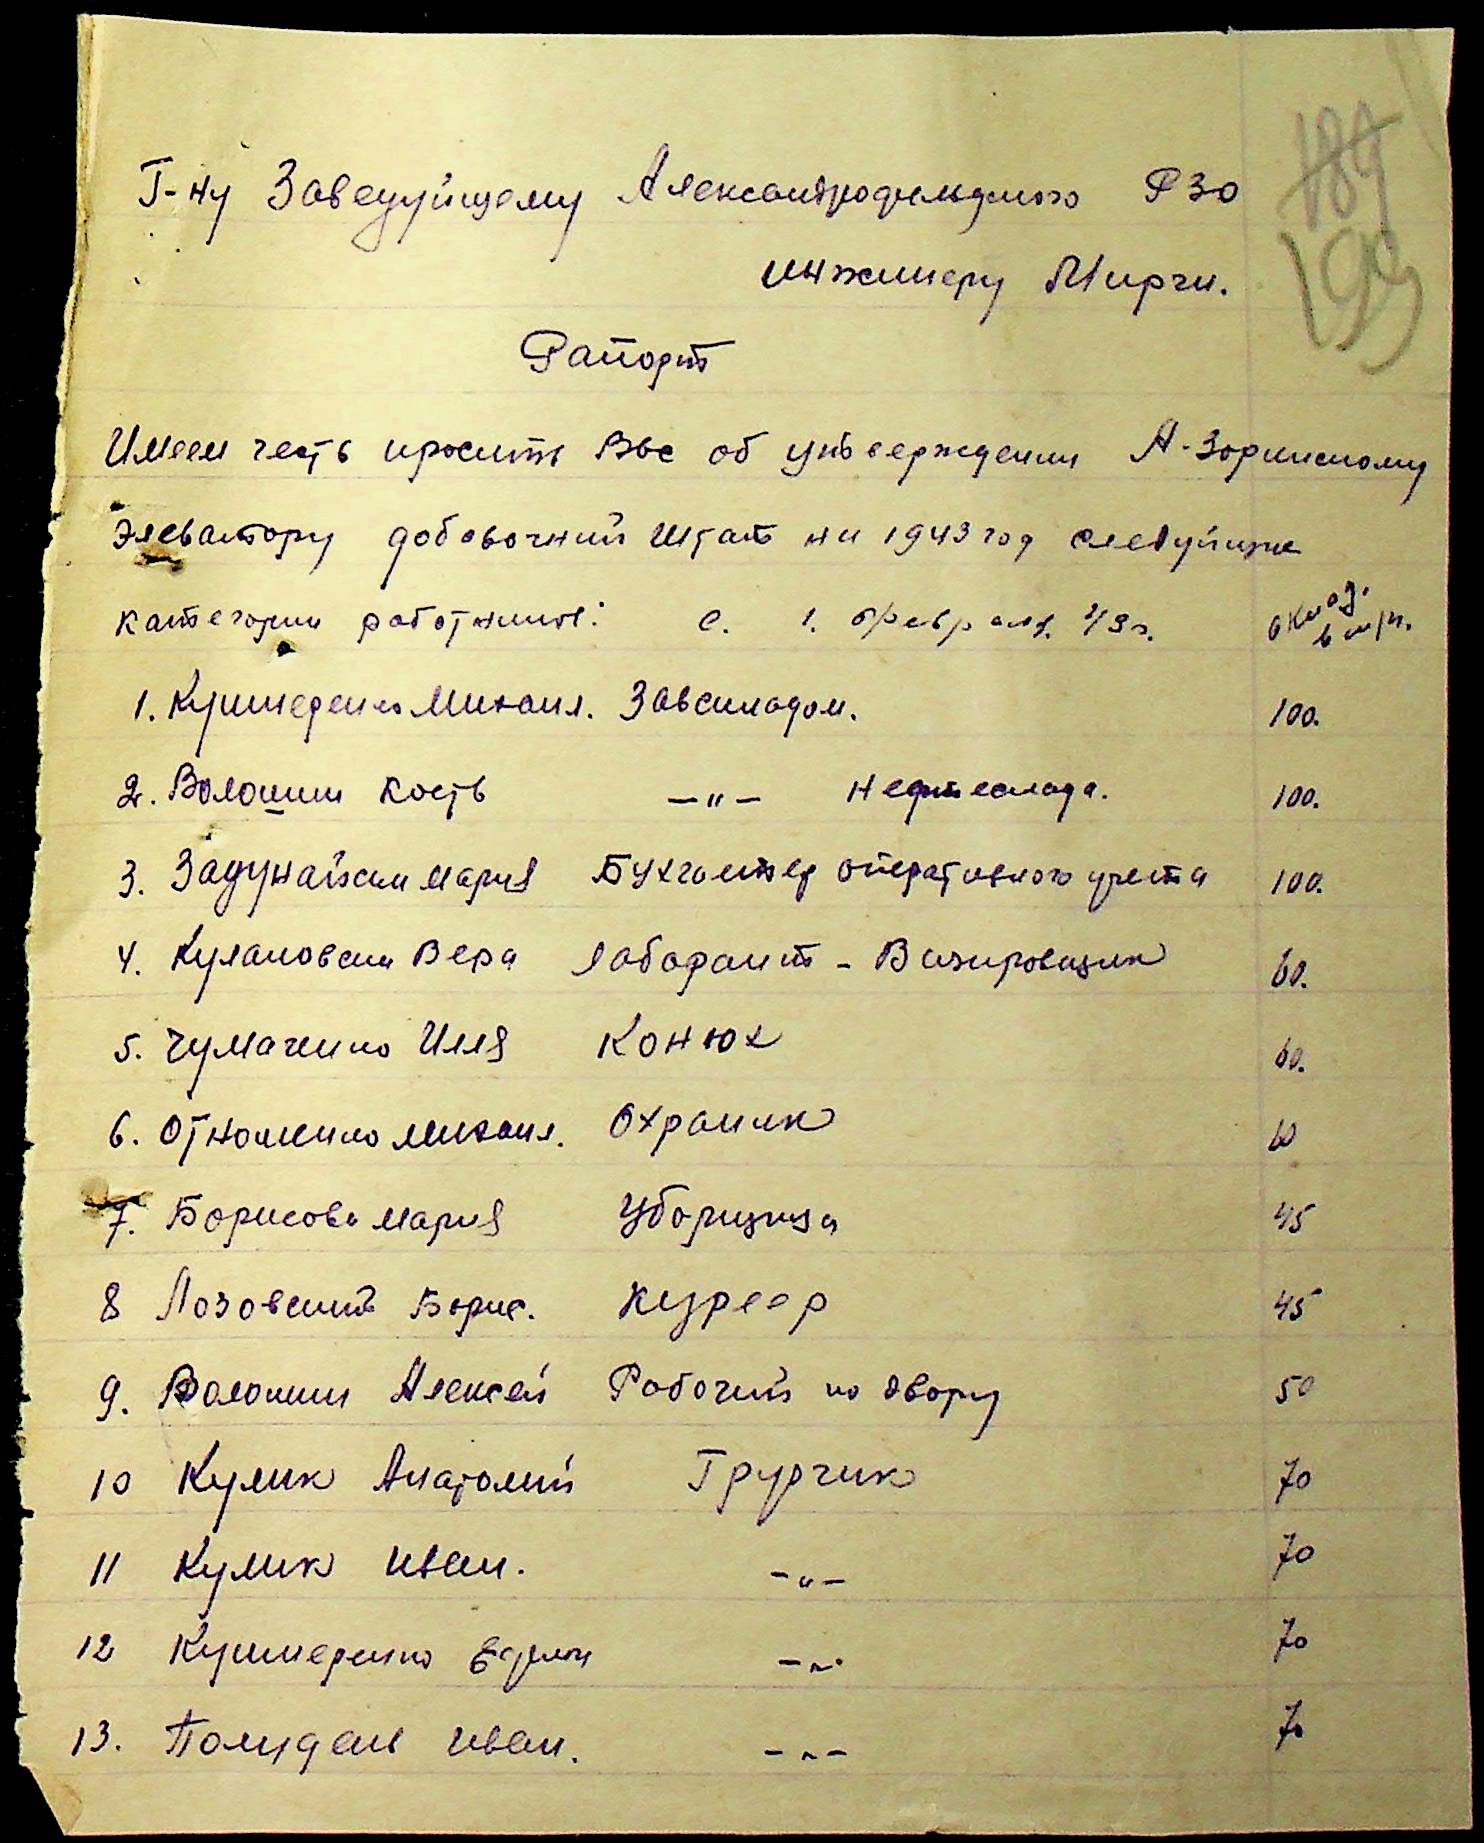 189
199
Г-ну Заведуйщему Александрофельдского РЗО
инженеру Мирчи.
Рапорт
Имеем честь просить Вас об утверждении А-Зоринскому
Элеватору добавочний штат на 1943 год следуйище
категории работников: с. 1. февраля 43 г. оклад. в м/н.
1. Кушнеренко Михаил. Завскладом. 100.
2. Волошин Кость —"— Нефтесклада. 100.
3. Задунайски Мария Бухгалтер оперативного учета 100.
4. Вера Лаборант - Визировщик 60.
5. Чумаченко Илля Конюх 60.
6. Михаил. Охраник 60
7. Борисова Мария Уборщица 45
8 Лозовский Борис. Куреер 45
9. Волошин Алексей Рабочий по двору 50
10 Кулик Анатолий Грузчик 70
11 Кулик Иван. -"- 70
12 Кушнеренко -"- 70
13. Полудень Иван. -"- 70